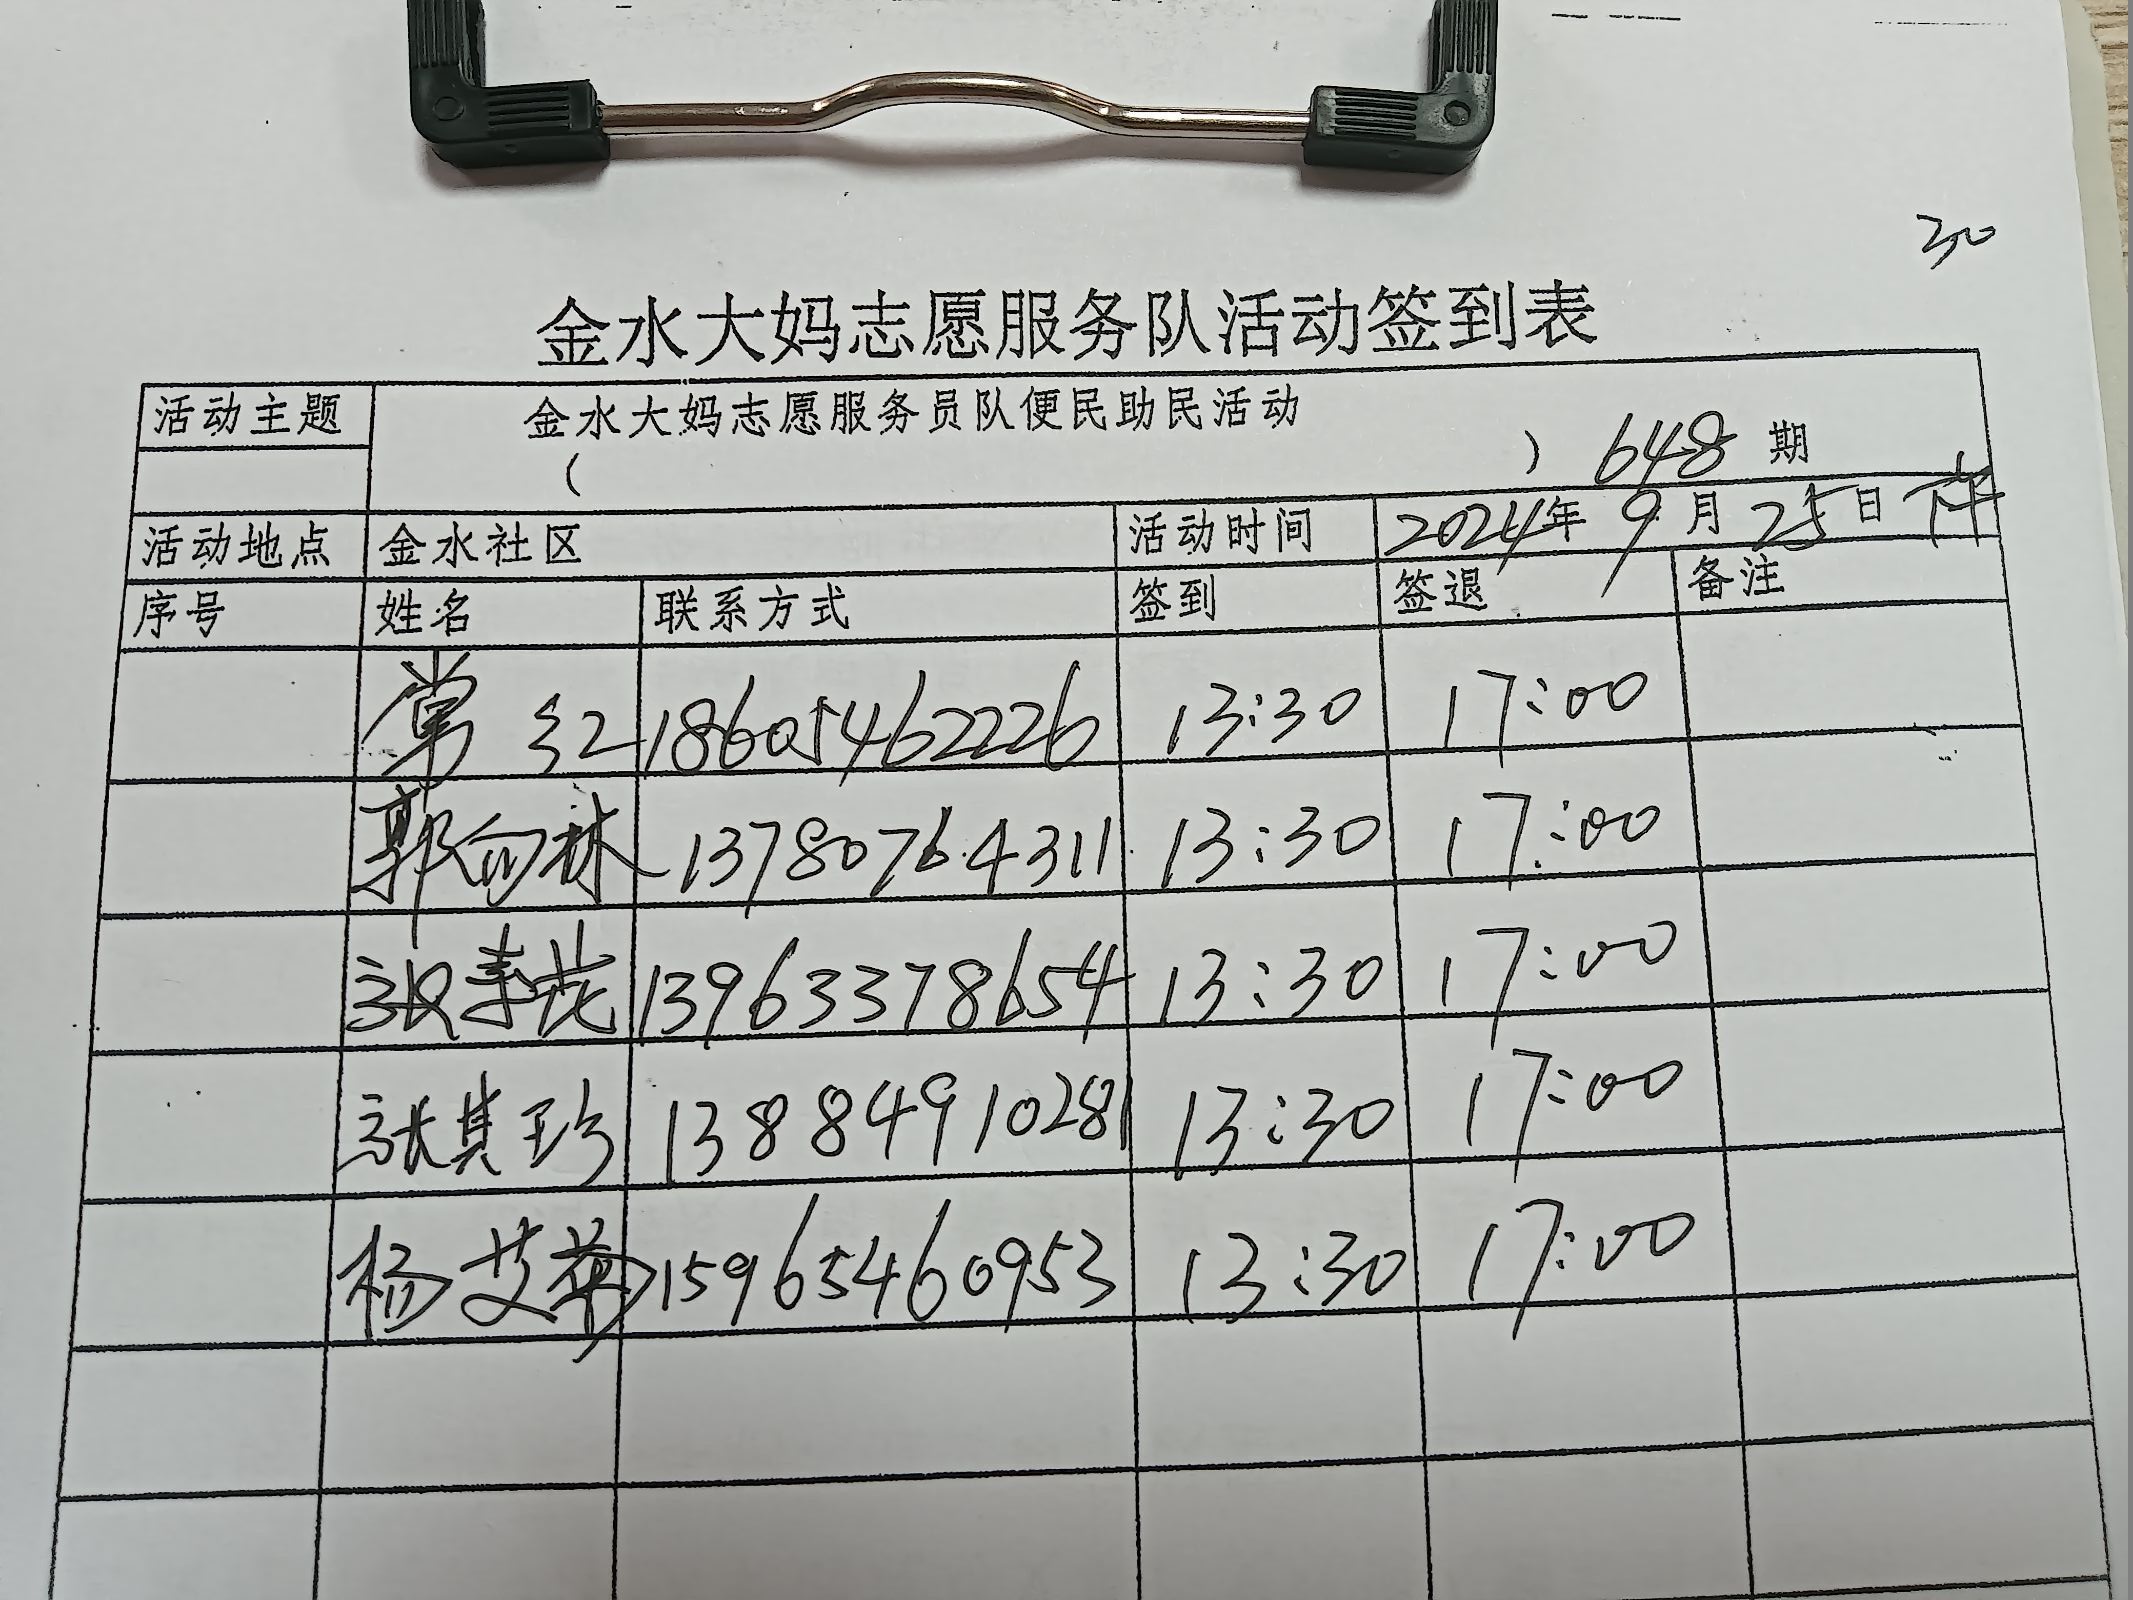 30
金水大妈志愿服务队活动签到表
活动主题 金水大妈志愿服务员队便民助民活动
( ) 648 期
活动地点 金水社区 活动时间 2024年 9月 25日 下午
序号 姓名 联系方式 签到 签退 备注
常红 18605462226 13:30 17:00
郭向林 13780764311 13:30 17:00
13963378654 13:30 17:00
张其珍 13884910281 13:30 17:00
杨艾菊 15965460953 13:30 17:00